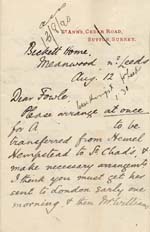 12/8/20
St Ann's, Cedar Road,
Sutton, Surrey.
Beckett Home,
Meanwood nr. Leeds
Aug. 12
Dear Fowle
Please arrange at once
for A to be
transferred from Hemel
Hempstead to St Chad's, &
make necessary arrangemts
I think you must get her
sent to London early one
morning & then Mr William